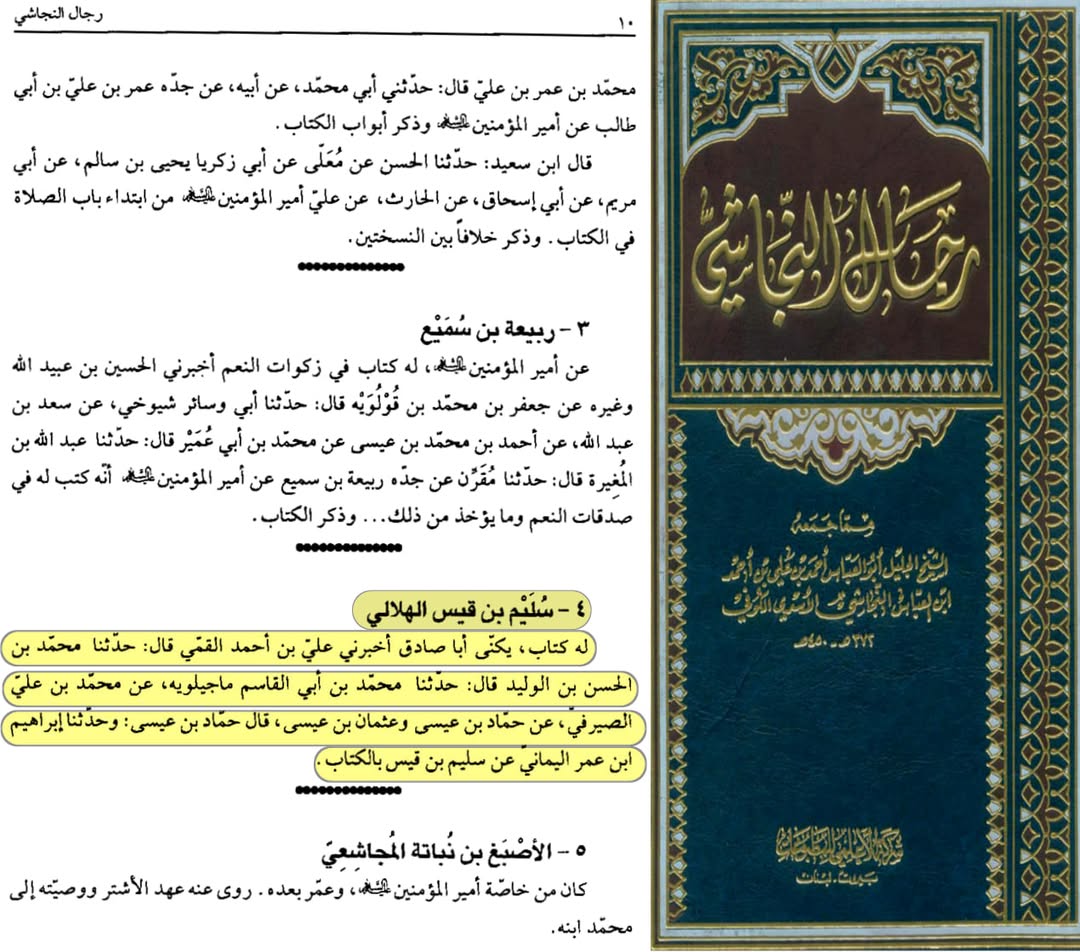 رجال النجاشي
١٠
محمّد بن عمر بن عليّ قال: حدّثني أبي محمّد، عن أبيه، عن جدّه عمر بن عليّ بن أبي
طالب عن أمير المؤمنين عليه السلام وذكر أبواب الكتاب.
قال ابن سعيد: حدّثنا الحسن عن مُعَلّى عن أبي زكريا يحيى بن سالم، عن أبي
مريم، عن أبي إسحاق، عن الحارث، عن عليّ أمير المؤمنين عليه السلام من ابتداء باب الصلاة
في الكتاب. وذكر خلافاً بين النسختين.
٣ - ربيعة بن سُمَيْع
عن أمير المؤمنين عليه السلام، له كتاب في زكوات النعم أخبرني الحسين بن عبيد الله
وغيره عن جعفر بن محمّد بن قُوْلُوَيْه قال: حدّثنا أبي وسائر شيوخي، عن سعد بن
عبد الله، عن أحمد بن محمّد بن عيسى عن محمّد بن أبي عُمَيْر قال: حدّثنا عبد الله بن
المُغِيرة قال: حدّثنا مُقَرِّن عن جدّه ربيعة بن سميع عن أمير المؤمنين عليه السلام أنّه كتب له في
صدقات النعم وما يؤخذ من ذلك... وذكر الكتاب.
٤ - سُلَيْم بن قيس الهلالي
له كتاب، يكنّى أبا صادق أخبرني عليّ بن أحمد القمّي قال: حدّثنا محمّد بن
الحسن بن الوليد قال: حدّثنا محمّد بن أبي القاسم ماجيلويه، عن محمّد بن عليّ
الصيرفيّ، عن حمّاد بن عيسى وعثمان بن عيسى، قال حمّاد بن عيسى: وحدّثنا إبراهيم
ابن عمر اليمانيّ عن سليم بن قيس بالكتاب.
٥ - الأصْبَغ بن نُباتة المُجاشِعِيّ
كان من خاصّة أمير المؤمنين عليه السلام، وعمّر بعده. روى عنه عهد الأشتر ووصيّته إلى
محمّد ابنه.
رجال النجاشي
ممّا جمعه
الشيخ الجليل أبو العباس أحمد بن علي بن أحمد
ابن العباس النجاشي الأسدي الكوفي
٣٧٢هـ - ٤٥٠هـ
شركة الأعلمي للمطبوعات
بيروت - لبنان